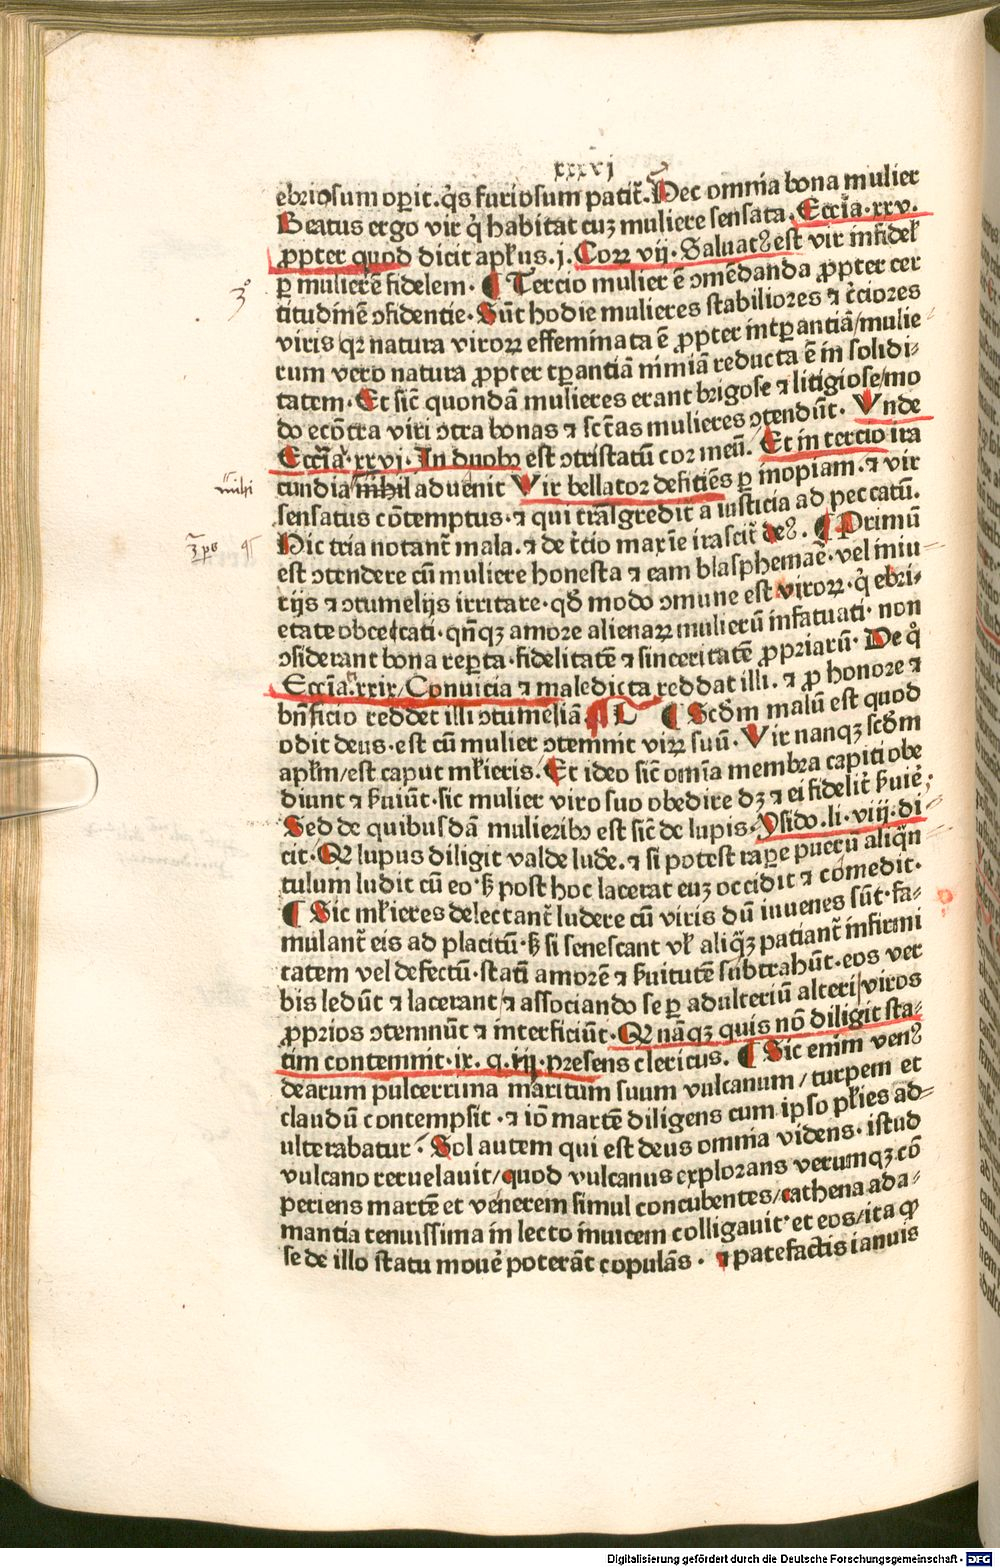 xxxvj
ebriosum oꝑit. q̄s furiosum patit̃. Hec omnia bona mulier
Beatus ergo vir q̇ habitat cuȝ muliere sensata. Eccīa. xxv.
ꝓpter quod dicit apƚus. j. Coꝝ vij. Saluatꝰ est vir infideƚ
ꝑ mulierē fidelem. ¶ Tercio mulier ē ꝯmēdanda ꝓpter cer
3°
titudinē ꝯfidentie. Sūt hodie mulieres stabiliores ⁊ t̄ciores
viris qꝛ natura viroꝝ effeminata ē ꝓpter intꝑantiā/mulie⸗
rum vero natura ꝓpter tꝑantiā nimiā reducta ē in solidi⸗
tatem. Et sic̄ quondā mulieres erant brigose ⁊ litigiose/mo
do ecōtra viri ꝯtra bonas ⁊ sc̄tas mulieres ꝯtendūt. Vnde
Eccīa. xxvi. In duobꝰ est ꝯtristatū cor meū. Et in tercio ira
mihi
cundia nihil aduenit Vir bellator deficiēs ꝑ inopiam. ⁊ vir
sensatus cōtemptus. ⁊ qui trāsgredit̄ a iusticia ad peccatū.
Hic tria notant̄ mala. ⁊ de t̄cio maxīe irascit̄ deꝰ. ¶ Primū
est ꝯtendere cū muliere honesta ⁊ eam blasphemaē. vel iniu⸗
rijs ⁊ ꝯtumelijs irritare. qḋ modo ꝯmune est viroꝝ. q̇ ebri⸗
etate obcecati. qn̄qȝ amore alienaꝝ mulierū infatuati. non
ꝯsiderant bona reꝑta. fidelitatē ⁊ sinceritatē ꝓpriarū. De q°
Eccīa. xxix/Conuicia ⁊ maledicta reddat illi. ⁊ ꝓ honore ⁊
bn̄ficio reddet illi ꝯtumeliā. ¶ Scḋm malū est quod
odit deus. est cū mulier ꝯtemnit viꝝ suū. Vir nanqȝ scḋm
apƚm/est caput mƚieris. Et ideo sic̄ omīa membra capiti obe
diunt ⁊ ẜuiūt. sic mulier viro suo obedire dȝ ⁊ ei fidelit̄ ẜuiē;
Sed de quibusdā mulieribꝰ est sic̄ de lupis. Ysido. li. viij. di⸗
cit. Q lupus diligit valde ludē. ⁊ si potest raꝑe puerū aliq̄n
tulum ludit cū eo. ẜ post hoc lacerat euȝ occidit ⁊ comedit.
¶ Sic mƚieres delectant̄ ludere cū viris dū iuuenes sūt. fa⸗
mulant̄ eis ad placitū. ẜ si senescant vƚ aliq̄ȝ patiant̄ infirmi
tatem vel defectū. statī amorē ⁊ ẜuitutē subtrahūt. eos ver
bis ledūt ⁊ lacerant/⁊ associando se ꝑ adulteriū alteri/viros
ꝓprios ꝯtemnūt ⁊ interficiūt. Q nāqȝ quis nō diligit sta⸗
tim contemnit. ix. q. iij. presens clericus. ¶ Sic enim venꝰ
dearum pulcerrima maritum suum vulcanum / turpem et
claudū contempsit. ⁊ iō martē diligens cum ipso pƚies ad⸗
ulterabatur. Sol autem qui est deus omnia videns. istud
vulcano reruelauit/quod vulcanus explorans verumqȝ cō
periens martē et venerem simul concubentes/cathena ada⸗
mantia tenuissima in lecto inuicem colligauit. et eos/ita ꝙ
se de illo statu mouē poterāt copulās. ⁊ patefactis ianuis
Digitalisierung gefördert durch die Deutsche Forschungsgemeinschaft - DFG